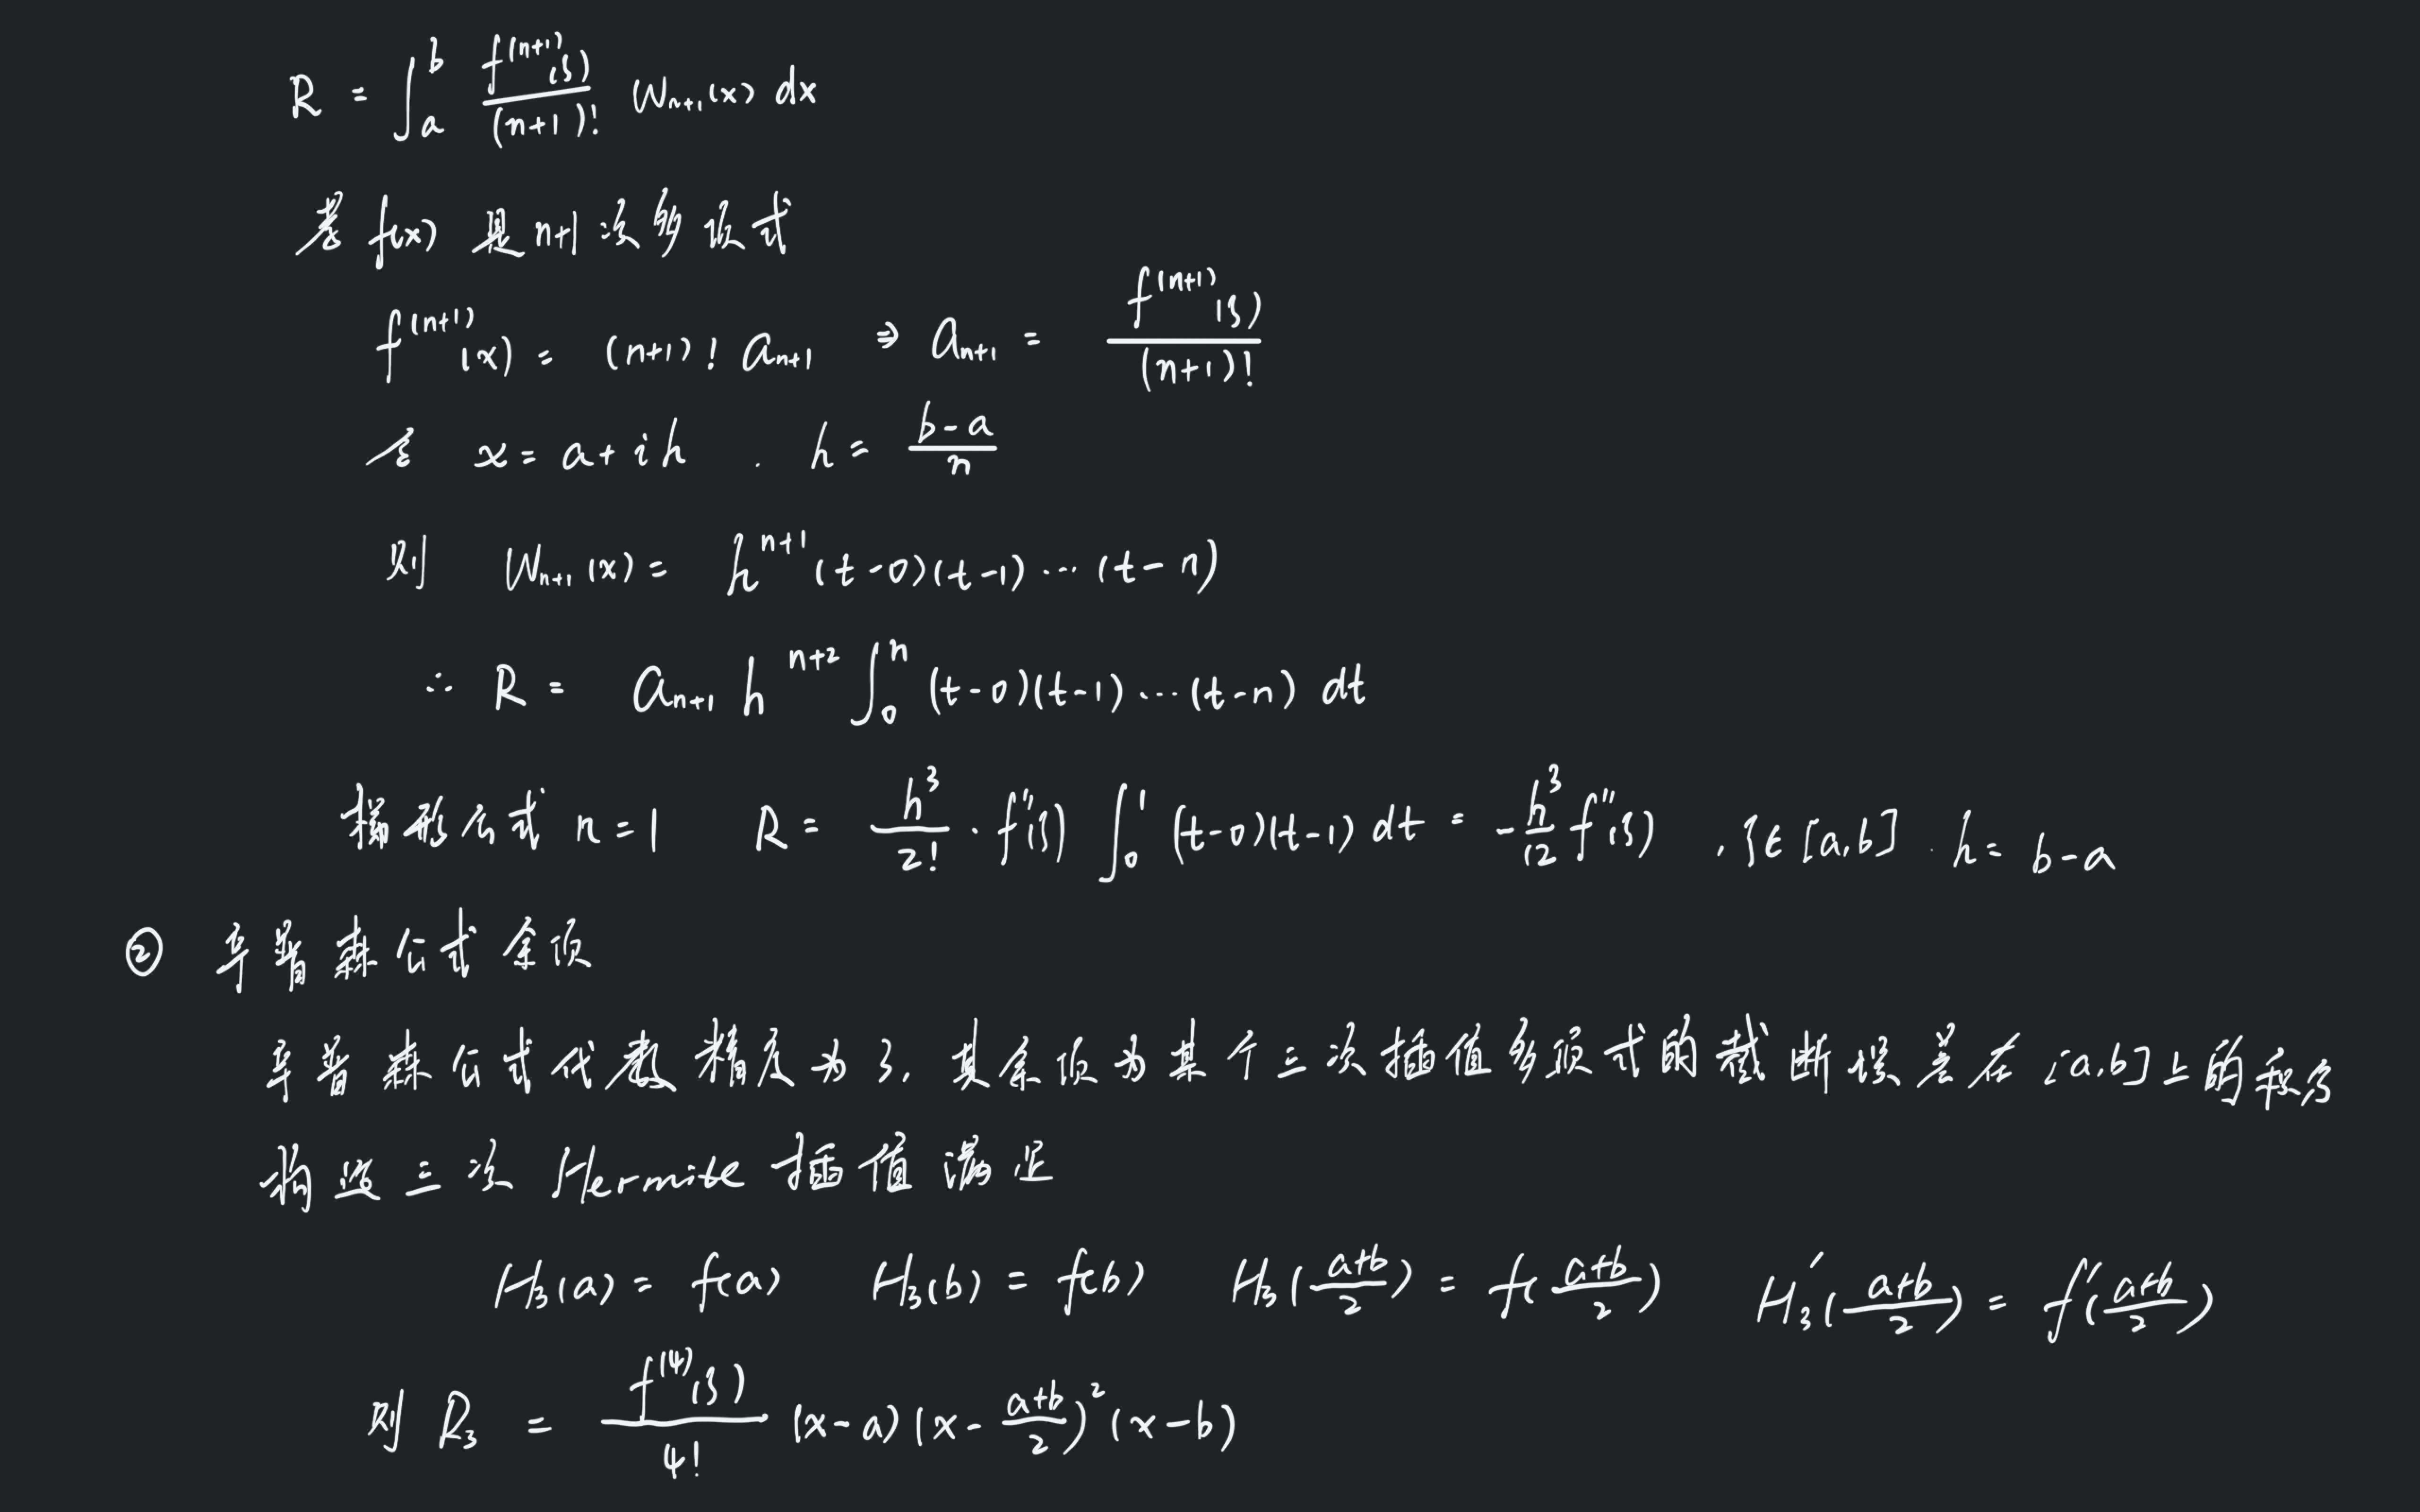 R = ∫_a^b f^{(n+1)}(ξ)/(n+1)! W_{n+1}(x) dx
若 f(x) 是 n+1 次多项式
f^{(n+1)}(x) = (n+1)! a_{n+1} ⇒ a_{n+1} = f^{(n+1)}(ξ)/(n+1)!
令 x = a+ih . h = (b-a)/n
则 W_{n+1}(x) = h^{n+1}(t-0)(t-1)···(t-n)
∴ R = a_{n+1} h^{n+2} ∫_0^n (t-0)(t-1)···(t-n) dt
梯形公式 n=1 R = h^3/2! · f''(ξ) ∫_0^1 (t-0)(t-1) dt = -h^3/12 f''(ξ) , ξ∈[a,b] . h = b-a
② 辛普森公式余项
辛普森公式代数精度为3, 其余项为某个三次插值多项式的截断误差在[a,b]上的积分
构造三次 Hermite 插值满足
H_3(a) = f(a) H_3(b) = f(b) H_3((a+b)/2) = f((a+b)/2) H_3'((a+b)/2) = f'((a+b)/2)
则 R_3 = f^{(4)}(ξ)/4! (x-a)(x-(a+b)/2)^2(x-b)